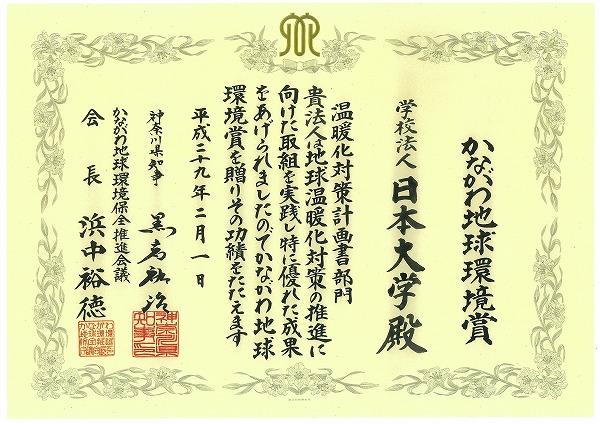 かながわ地球環境賞
学校法人 日本大学殿
温暖化対策計画書部門
貴法人は地球温暖化対策の推進に
向けた取組を実践し特に優れた成果
をあげられましたのでかながわ地球
環境賞を贈りその功績をたたえます
平成二十九年二月一日
神奈川県知事 黒岩祐治
かながわ地球環境保全推進会議
会長 浜中裕徳